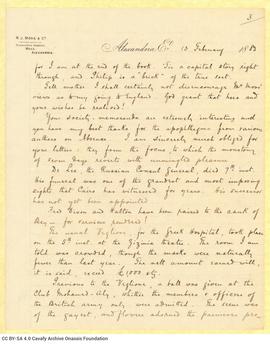 3.
R. J. MOSS & Co.
ALEXANDRIA.
Alexandria, Et. 13 February 1883
for I am at the end of the book. 'Tis a capital story right
through, and Philip is a "brick" of the true sort.
Tell mother I shall certainly not discourage Mr Moss'
views as to my going to England. God grant that hers and
your wishes be realised!
Your society-memoranda are extremely interesting and
you have my best thanks for the apophthegms from various
authors on Absence. I am sincerely much obliged for
your letters: they form the focus, to which the monotony
of seven days reverts with unmingled pleasure.
De Lex, the Russian Consul General, died 7th inst.
His funeral was one of the grandest and most imposing
sights that Cairo has witnessed for years. His successor
has not yet been appointed.
Fred Dixon and Hatton have been raised to the rank of
Bey — for services rendered!
The usual Veglione, for the Greek Hospital, took place
on the 5th inst. at the Zizinia theatre. The room I am
told was crowded, though the masks were naturally
fewer than last year. The nett amount earned will,
it is said, exceed £1,000 stg.
Previous to the Veglione, a ball was given at the
Club Mohamed-Aly, which the members & officers of
the British army only were admitted. The crew was
of the gayest, and flowers adorned the premises pro-
CC BY-SA 4.0 Cavafy Archive Onassis Foundation